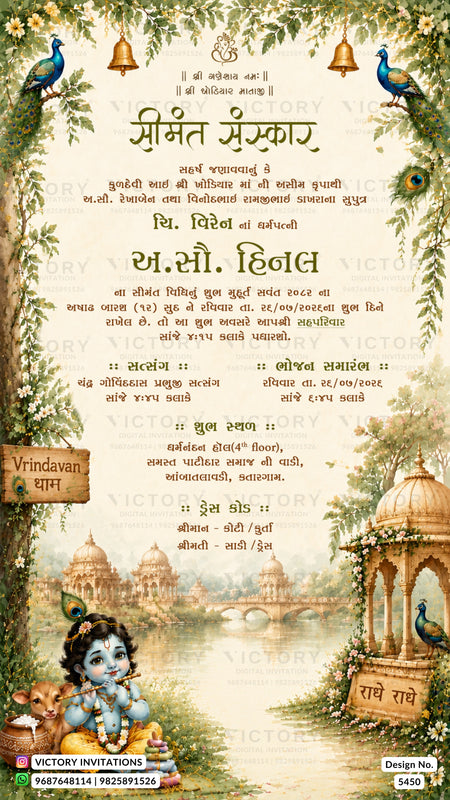 || શ્રી ગણેશાય નમઃ ||
|| શ્રી ખોડિયાર માતાજી ||
સીમંત સંસ્કાર
સહર્ષ જણાવવાનું કે
કુળદેવી આઈ શ્રી ખોડિયાર માં ની અસીમ કૃપાથી
અ.સૌ. રેખાબેન તથા વિનોદભાઈ રામજીભાઈ ડાખરાના સુપુત્ર
ચિ. વિરેન નાં ધર્મપત્ની
અ.સૌ. હિનલ
ના સીમંત વિધિનું શુભ મુહૂર્ત સવંત ૨૦૮૨ ના
અષાઢ બારશ (૧૨) સુદ ને રવિવાર તા. ૨૬/૦૭/૨૦૨૬ના શુભ દિને
રાખેલ છે. તો આ શુભ અવસરે આપશ્રી સહપરિવાર
સાંજે ૪:૧૫ કલાકે પધારશો.
:: સત્સંગ ::
ચંદ્ર ગોવિંદદાસ પ્રભુજી સત્સંગ
સાંજે ૪:૪૫ કલાકે
:: ભોજન સમારંભ ::
રવિવાર તા. ૨૬/૦૭/૨૦૨૬
સાંજે ૬:૪૫ કલાકે
:: શુભ સ્થળ ::
ધર્મનંદન હૉલ(4th floor),
સમસ્ત પાટીદાર સમાજ ની વાડી,
આંબાતલાવડી, કતારગામ.
:: ડ્રેસ કોડ ::
શ્રીમાન - કોટી /કુર્તા
શ્રીમતી - સાડી /ડ્રેસ
Vrindavan
धाम
राधे राधे
VICTORY INVITATIONS
9687648114 | 9825891526
Design No.
5450
VICTORY
DIGITAL INVITATION
9687648114 | 9825891526